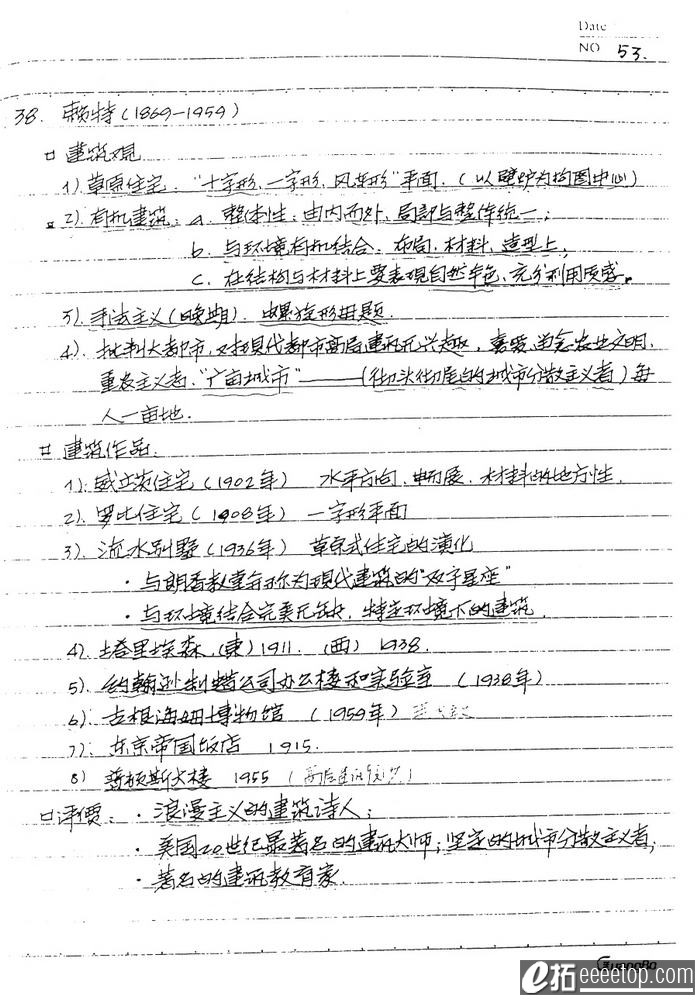 Date
NO 53.
38. 赖特(1869-1959)
建筑观
1) 草原住宅. "十字形, 一字形, 风车形"平面. (以壁炉为构图中心)
2) 有机建筑: a. 整体性: 由内而外, 局部与整体统一;
b. 与环境有机结合. 布局. 材料. 造型上,
c. 在结构与材料上要表现自然本色, 充分利用质感.
3). 手法主义(晚期). 螺旋形母题.
4). 批判大都市, 对现代都市高层建筑无兴趣, 喜爱、尚念农业文明,
重农主义者. "广亩城市"——(彻头彻尾的城市分散主义者) 每
人一亩地.
建筑作品.
1). 威立茨住宅(1902年) 水平方向, 伸展, 木材料的地方性.
2). 罗比住宅(1908年) 一字形平面
3) 流水别墅(1936年) 草原式住宅的演化
· 与朗香教堂并称为现代建筑的"双子星座"
· 与环境结合完美无缺, 特定环境下的建筑.
4) 塔里埃森. (東) 1911. (西) 1938.
5). 约翰逊制蜡公司办公楼和实验室 (1938年)
6). 古根海姆博物馆 (1959年)
7). 东京帝国饭店 1915.
8) 普顿斯大楼 1955
评價: · 浪漫主义的建筑诗人;
· 美国20世纪最著名的建筑大师; 坚定的城市分散主义者;
· 著名的建筑教育家.
GuangBo
e拓 eeeetop.com